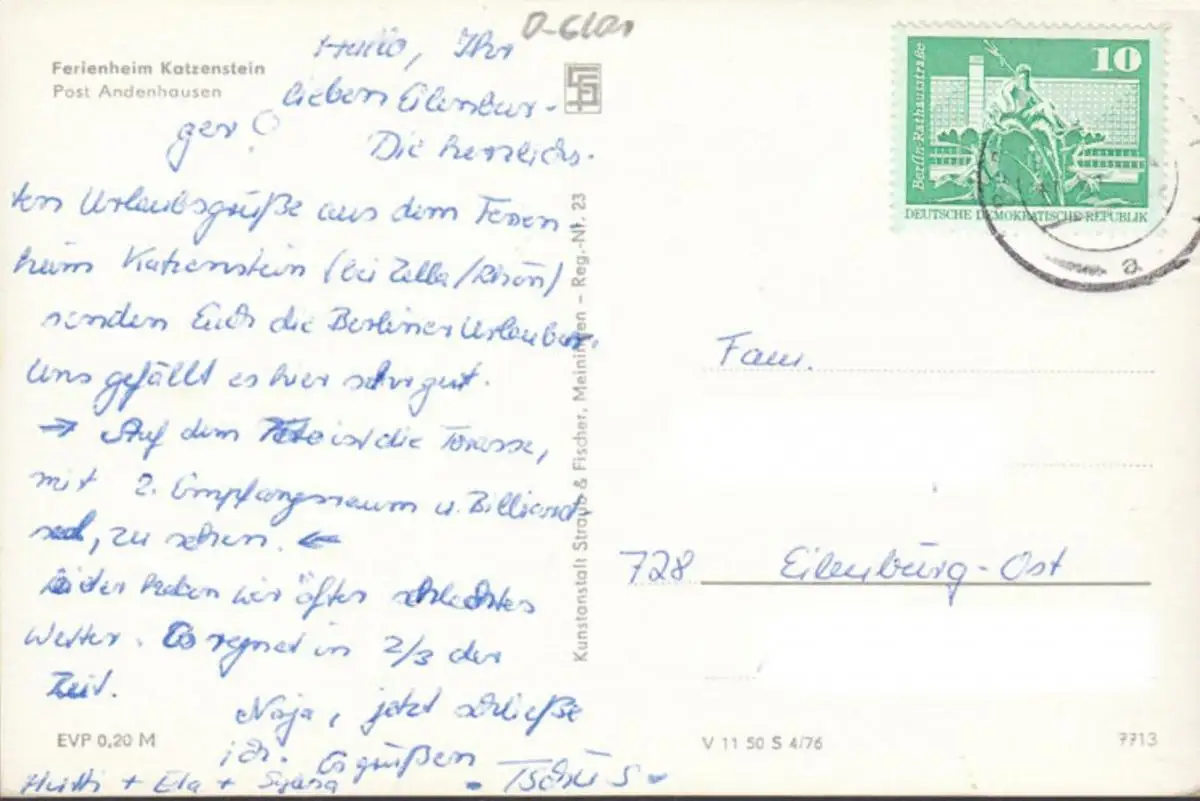 Ferienheim Katzenstein
Post Andenhausen
Hallo, Ihr
lieben Eilenbur-
ger!
Die herzlichs-
ten Urlaubsgrüße aus dem Ferien
heim Katzenstein (bei Zella/Rhön)
senden Euch die Berliner Urlauber.
Uns gefällt es hier sehr gut.
→ Auf dem Foto ist die Terasse,
mit 2. Empfangsraum u. Billiard-
saal, zu sehen. ←
Leider haben wir öfter schlechtes
Wetter. Es regnet in 2/3 der
Zeit.
Naja, jetzt schließe
ich. Es grüßen
+ Ela +
- Tschüs -
EVP 0,20 M
Kunstanstalt Straub & Fischer, Meiningen – Reg.-Nr. 23
10
Berlin-Rathausstraße
DEUTSCHE DEMOKRATISCHE REPUBLIK
a
Fam.
728 Eilenburg-Ost
V 11 50 S 4/76
7713